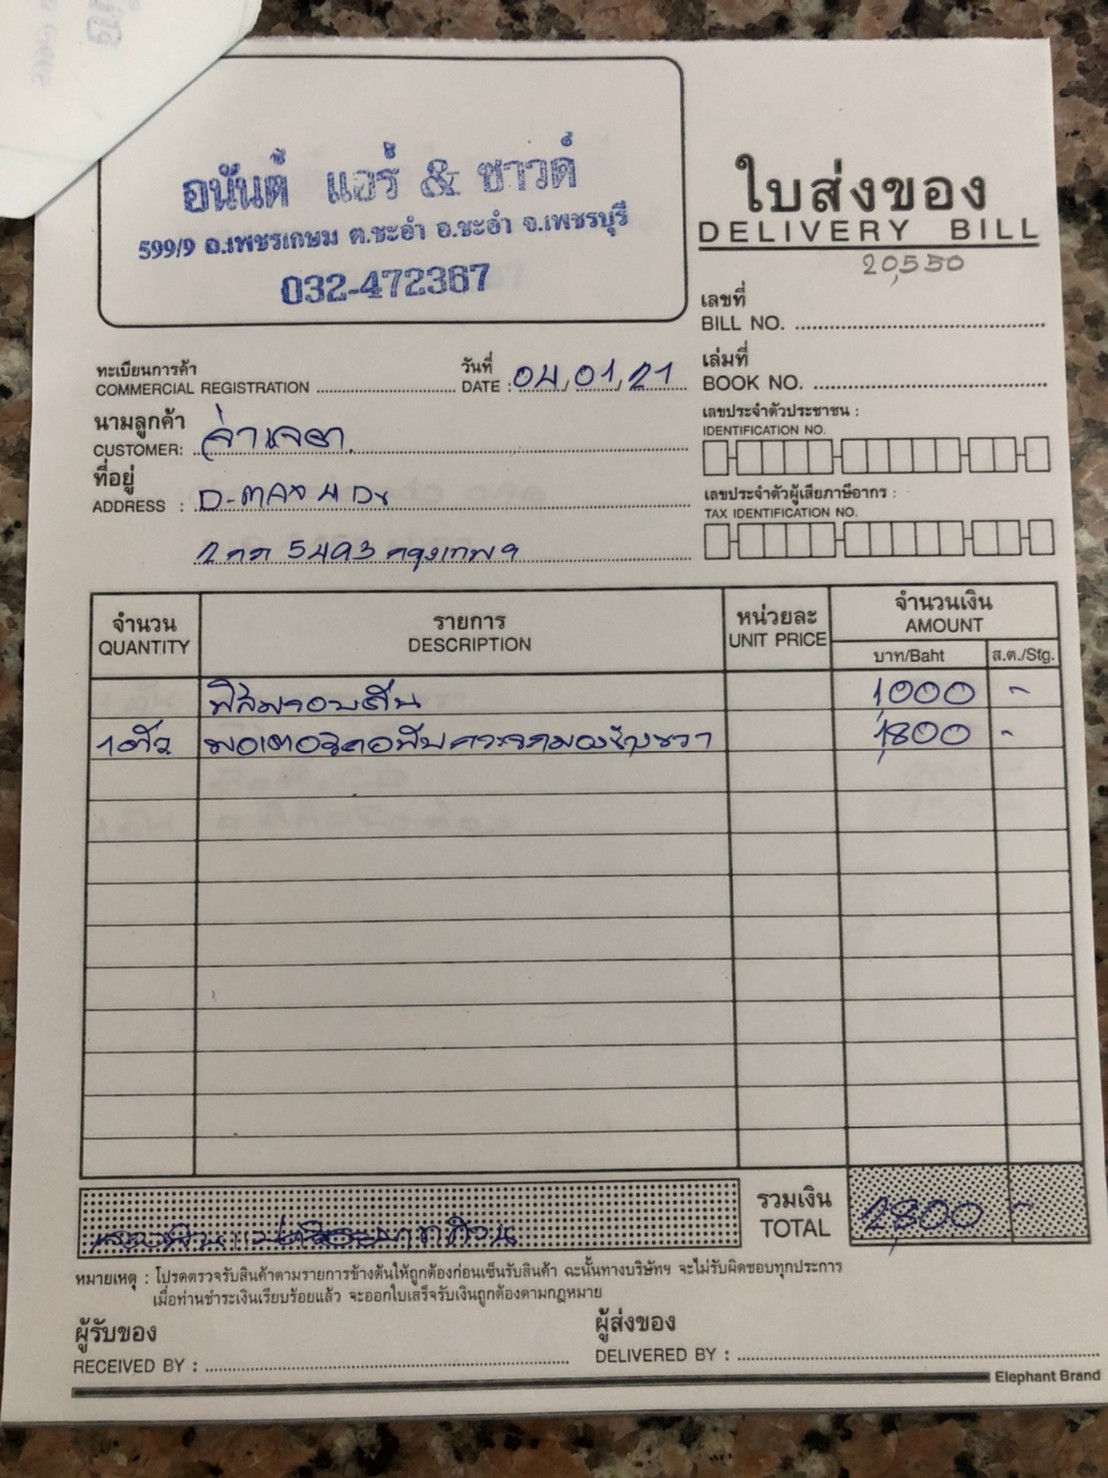 อนันต์ แอร์ & ซาวด์
599/9 ถ.เพชรเกษม ต.ชะอำ อ.ชะอำ จ.เพชรบุรี
032-472367
ใบส่งของ
DELIVERY BILL
20,550
เลขที่
BILL NO.
ทะเบียนการค้า
COMMERCIAL REGISTRATION
วันที่
DATE : 04/01/21
เล่มที่
BOOK NO.
นามลูกค้า
CUSTOMER:
เลขประจำตัวประชาชน :
IDENTIFICATION NO.
ที่อยู่
ADDRESS : D-MAX 4 Dr
เลขประจำตัวผู้เสียภาษีอากร :
TAX IDENTIFICATION NO.
2กภ 5493 กรุงเทพฯ
จำนวน
QUANTITY
รายการ
DESCRIPTION
หน่วยละ
UNIT PRICE
จำนวนเงิน
AMOUNT
บาท/Baht
ส.ต./Stg.
ฟิล์มรอบคัน 1,000 -
1 ตัว มอเตอร์คอพับกระจกมองข้างขวา 1,800 -
รวมเงิน
TOTAL
2,800 -
หมายเหตุ : โปรดตรวจรับสินค้าตามรายการข้างต้นให้ถูกต้องก่อนเซ็นรับสินค้า ฉะนั้นทางบริษัทฯ จะไม่รับผิดชอบทุกประการ
เมื่อท่านชำระเงินเรียบร้อยแล้ว จะออกใบเสร็จรับเงินถูกต้องตามกฎหมาย
ผู้รับของ
RECEIVED BY :
ผู้ส่งของ
DELIVERED BY :
Elephant Brand